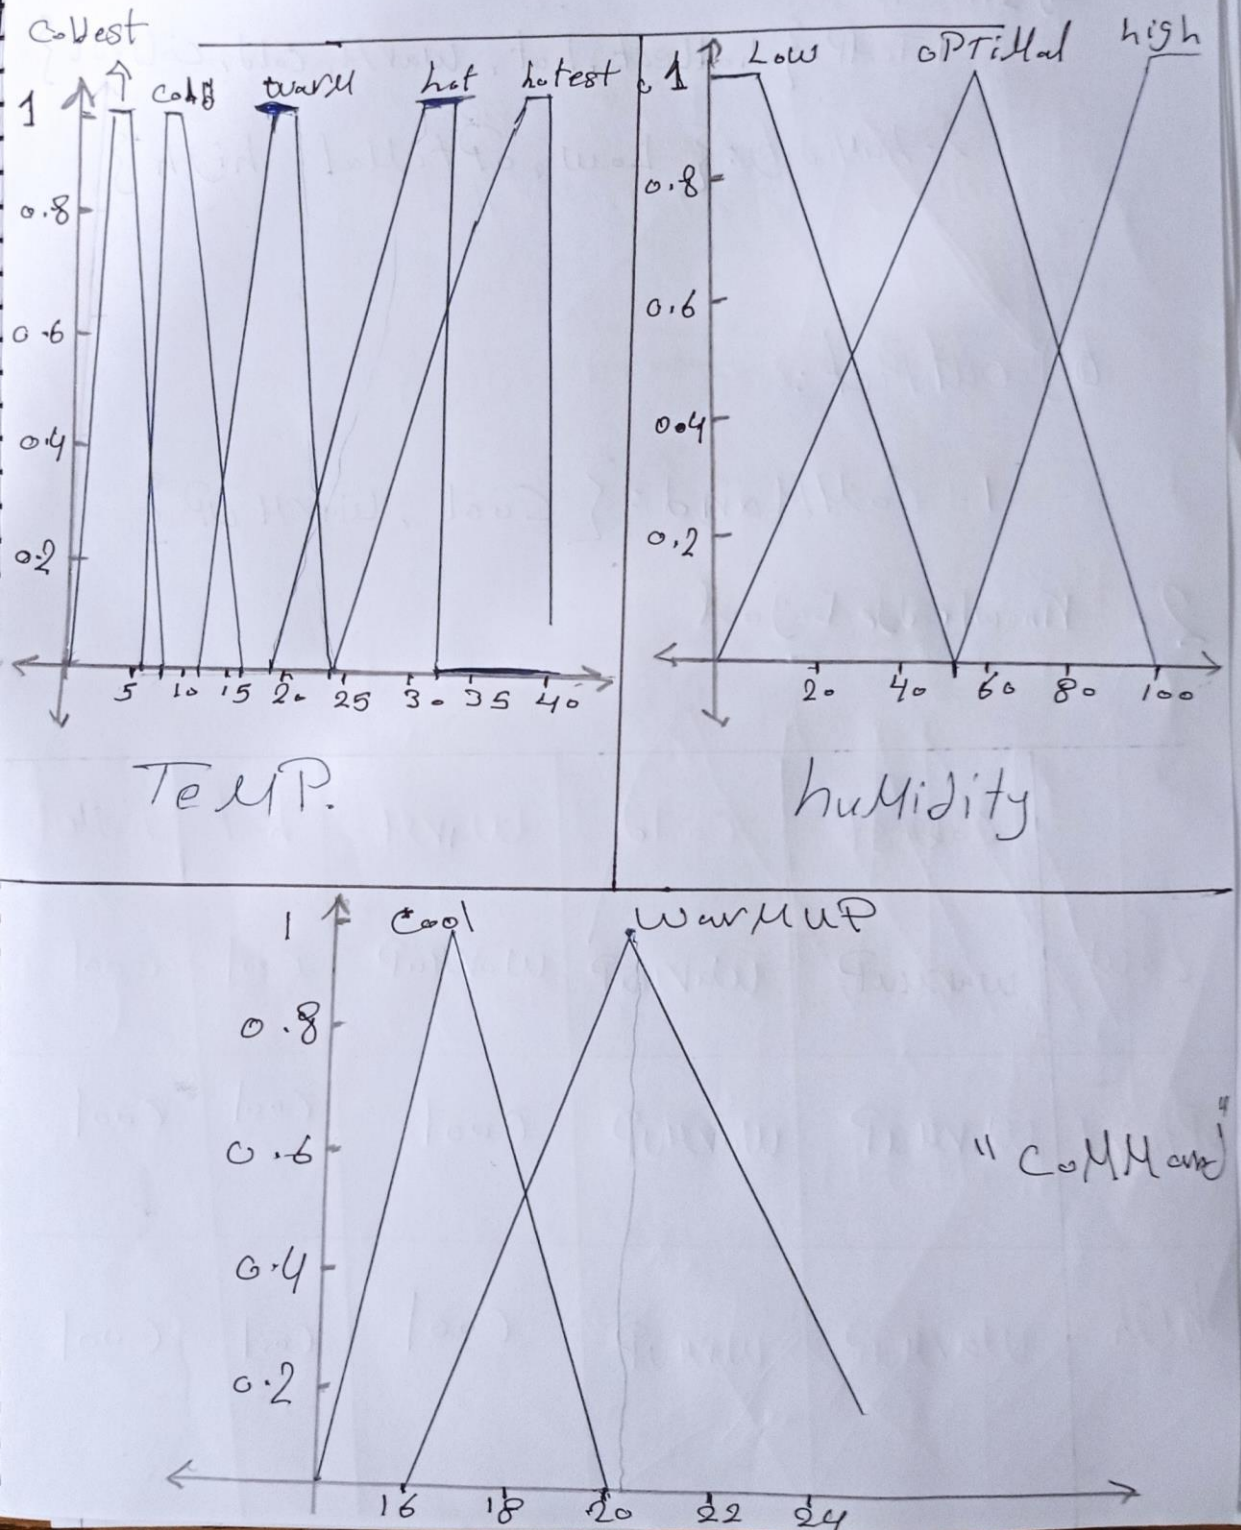 Coldest
cold
warm
hot
hotest
1
0.8
0.6
0.4
0.2
5 10 15 20 25 30 35 40
TeMP.
Low
oPTiMal
high
1
0.8
0.6
0.4
0.2
20 40 60 80 100
huMidity
Cool
warMuP
1
0.8
0.6
0.4
0.2
16 18 20 22 24
"CoMMand"